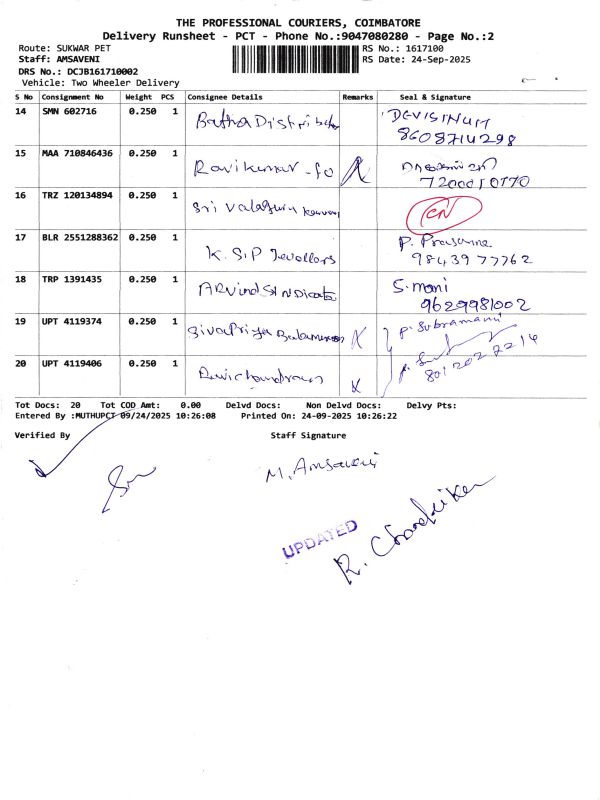 THE PROFESSIONAL COURIERS, COIMBATORE
Delivery Runsheet - PCT - Phone No.:9047080280 - Page No.:2
Route: SUKWAR PET RS No.: 1617100
Staff: AMSAVENI RS Date: 24-Sep-2025
DRS No.: DCJB161710002
Vehicle: Two Wheeler Delivery
S No Consignment No Weight PCS Consignee Details Remarks Seal & Signature
14 SMN 602716 0.250 1 DEVISINUM
8608714298
15 MAA 710846436 0.250 1 Ravikumar
7200010770
16 TRZ 120134894 0.250 1 Sri
17 BLR 2551288362 0.250 1 K.S.P Jewellers P. Prasanna
9843977762
18 TRP 1391435 0.250 1 ARvind SINdicate S.mani
9629981002
19 UPT 4119374 0.250 1 SivaPriya P. Subramani
20 UPT 4119406 0.250 1 Ravichandran
8012027214
Tot Docs: 20 Tot COD Amt: 0.00 Delvd Docs: Non Delvd Docs: Delvy Pts:
Entered By :MUTHUPCT 09/24/2025 10:26:08 Printed On: 24-09-2025 10:26:22
Verified By Staff Signature
M. Amsaveni
UPDATED